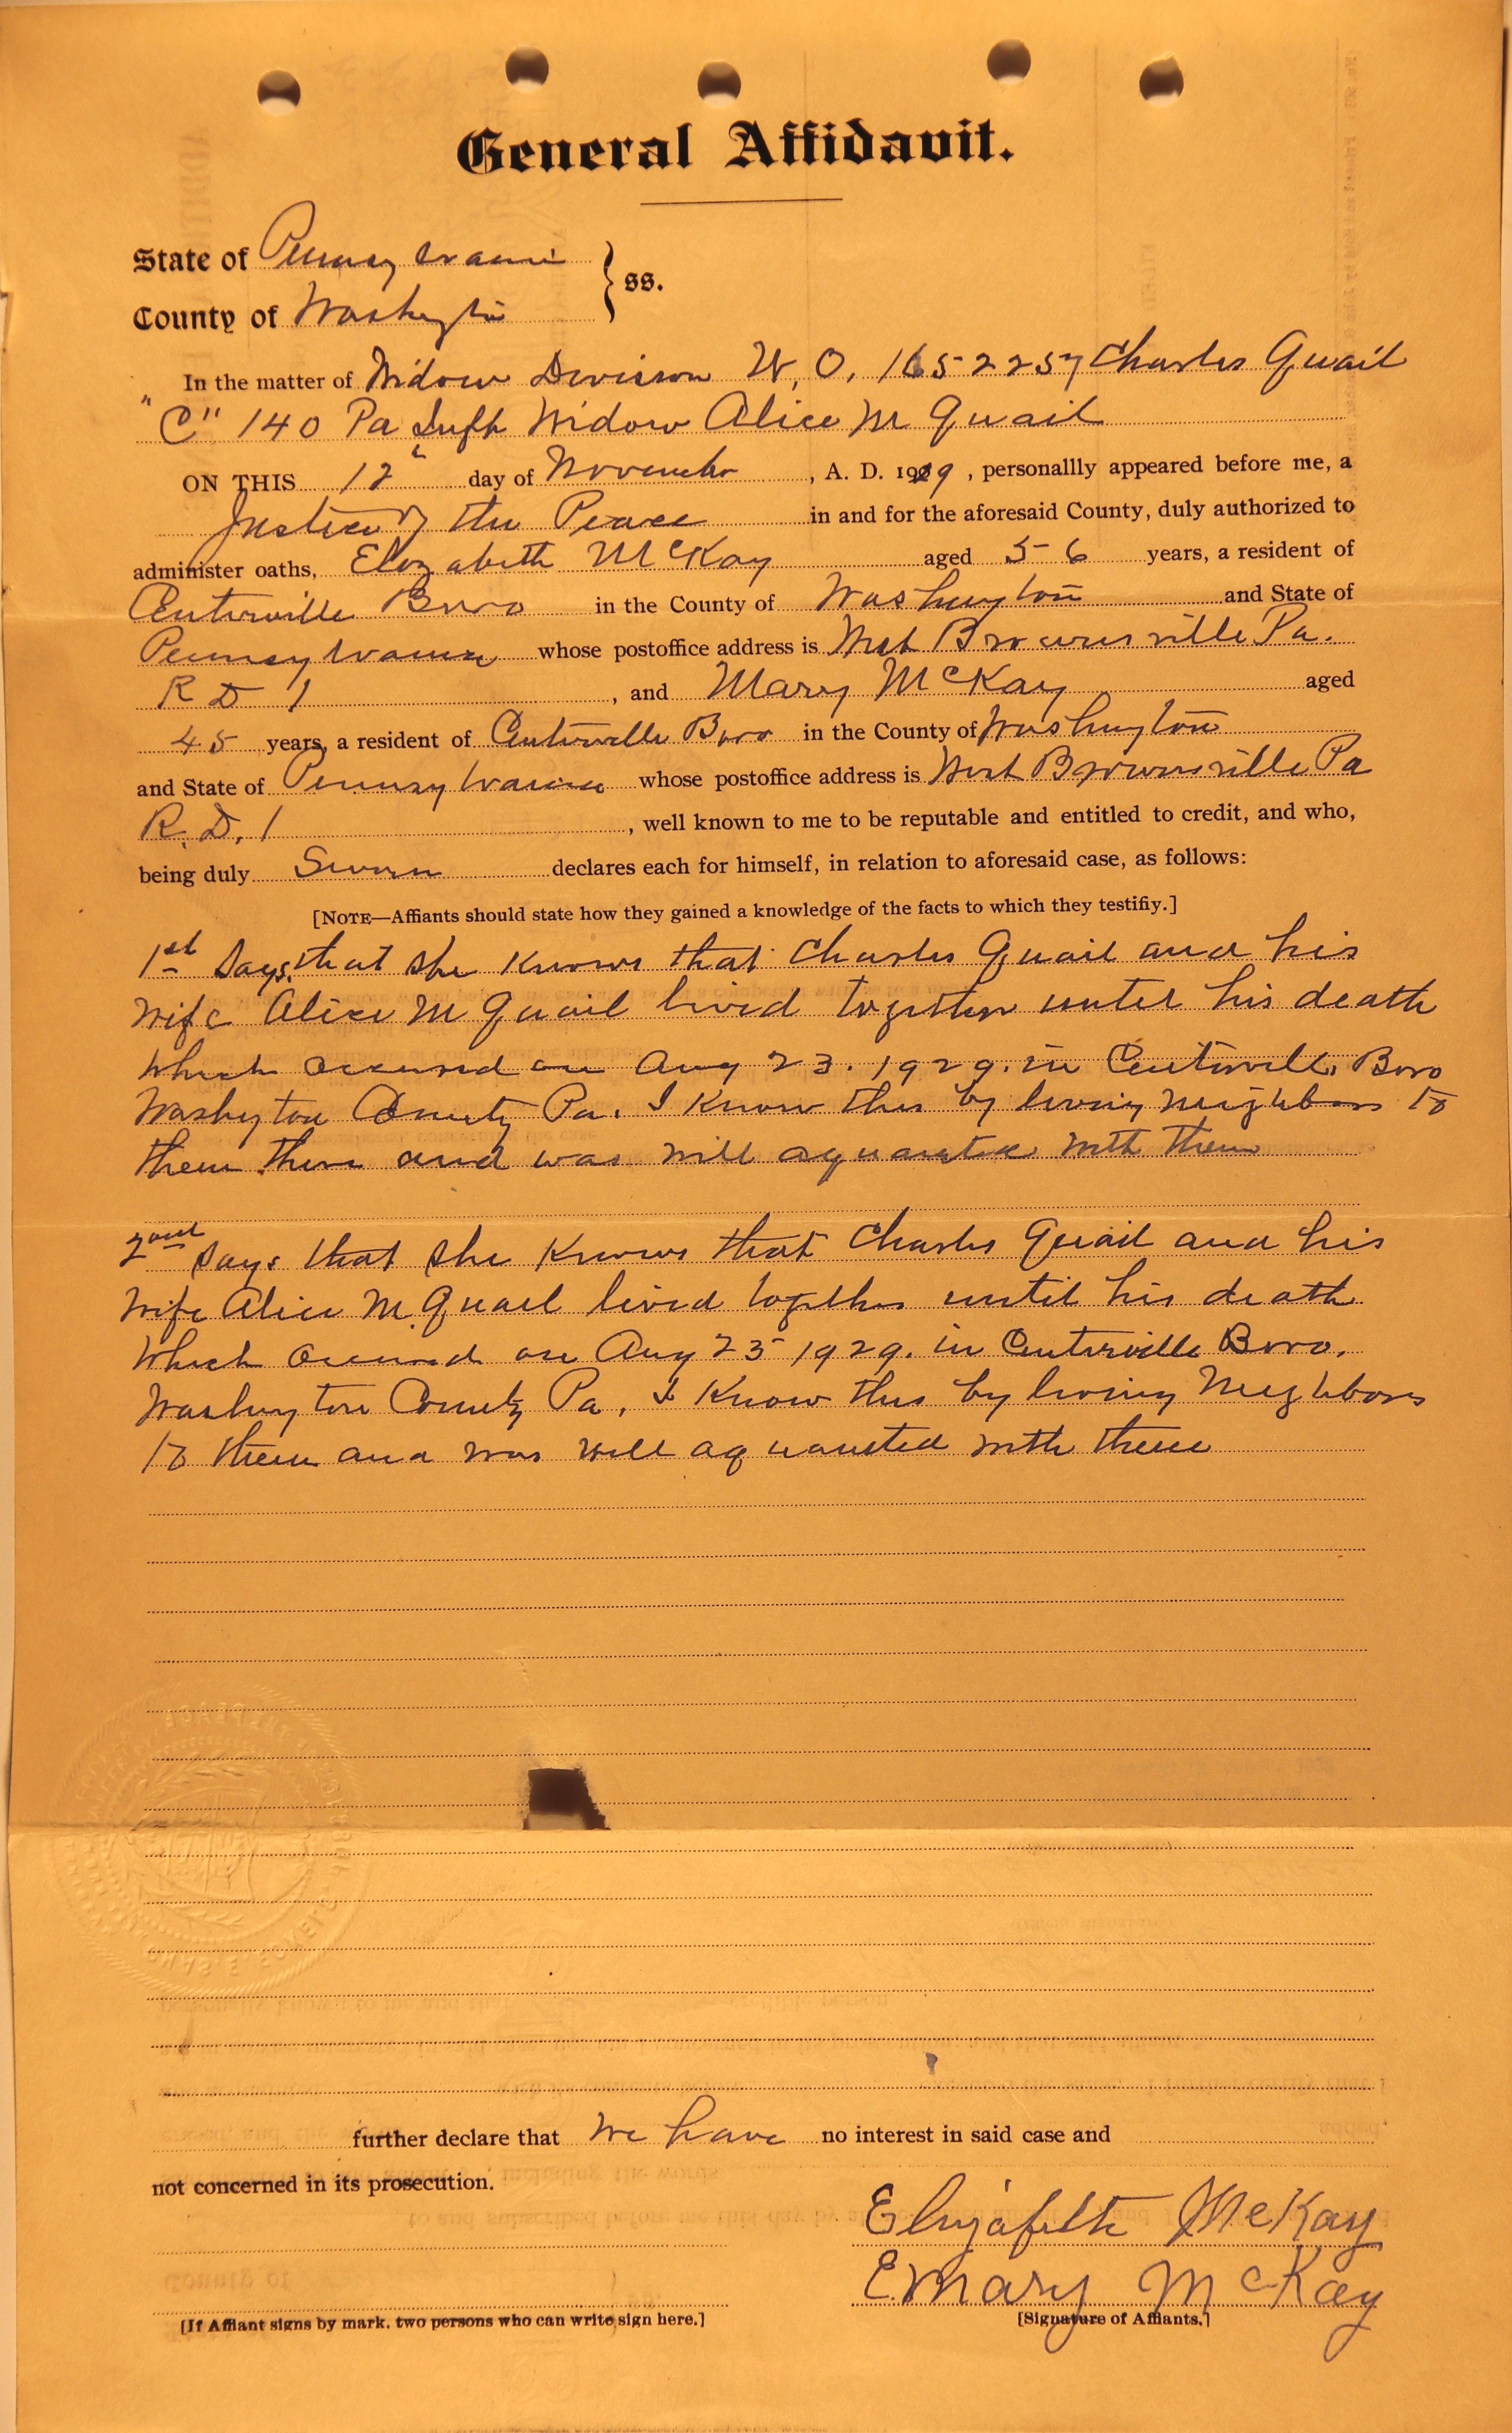 General Affidavit.
State of Pennsylvania } ss.
County of Washington
In the matter of Widow Division W. O. 1652257 Charles Quail
"C" 140 Pa Inft Widow Alice M Quail
ON THIS 12" day of November, A. D. 1929, personallly appeared before me, a
Justice of the Peace in and for the aforesaid County, duly authorized to
administer oaths, Elizabeth McKay aged 56 years, a resident of
Centerville Boro in the County of Washington and State of
Pennsylvania whose postoffice address is West Brownsville Pa.
R D 1, and Mary McKay aged
45 years, a resident of Centerville Boro in the County of Washington
and State of Pennsylvania whose postoffice address is West Brownsville Pa
R. D. 1, well known to me to be reputable and entitled to credit, and who,
being duly Sworn declares each for himself, in relation to aforesaid case, as follows:
[NOTE—Affiants should state how they gained a knowledge of the facts to which they testifiy.]
1st Says that she Knows that Charles Quail and his
wife Alice M Quail lived together until his death
which occured on Aug 23. 1929. in Centerville Boro
Washington County Pa. I Know this by living neighbors to
them there and was well aquainted with them
2ond Says that she Knows that Charles Quail and his
wife Alice M. Quail lived together until his death
which occured on Aug 23 1929. in Centerville Boro.
Washington County Pa. I Know this by living Neighbors
to them and was well aquainted with them
further declare that we have no interest in said case and
not concerned in its prosecution.
Elizabeth McKay
E. Mary McKay
[If Affiant signs by mark. two persons who can write sign here.] [Signature of Affiants.]